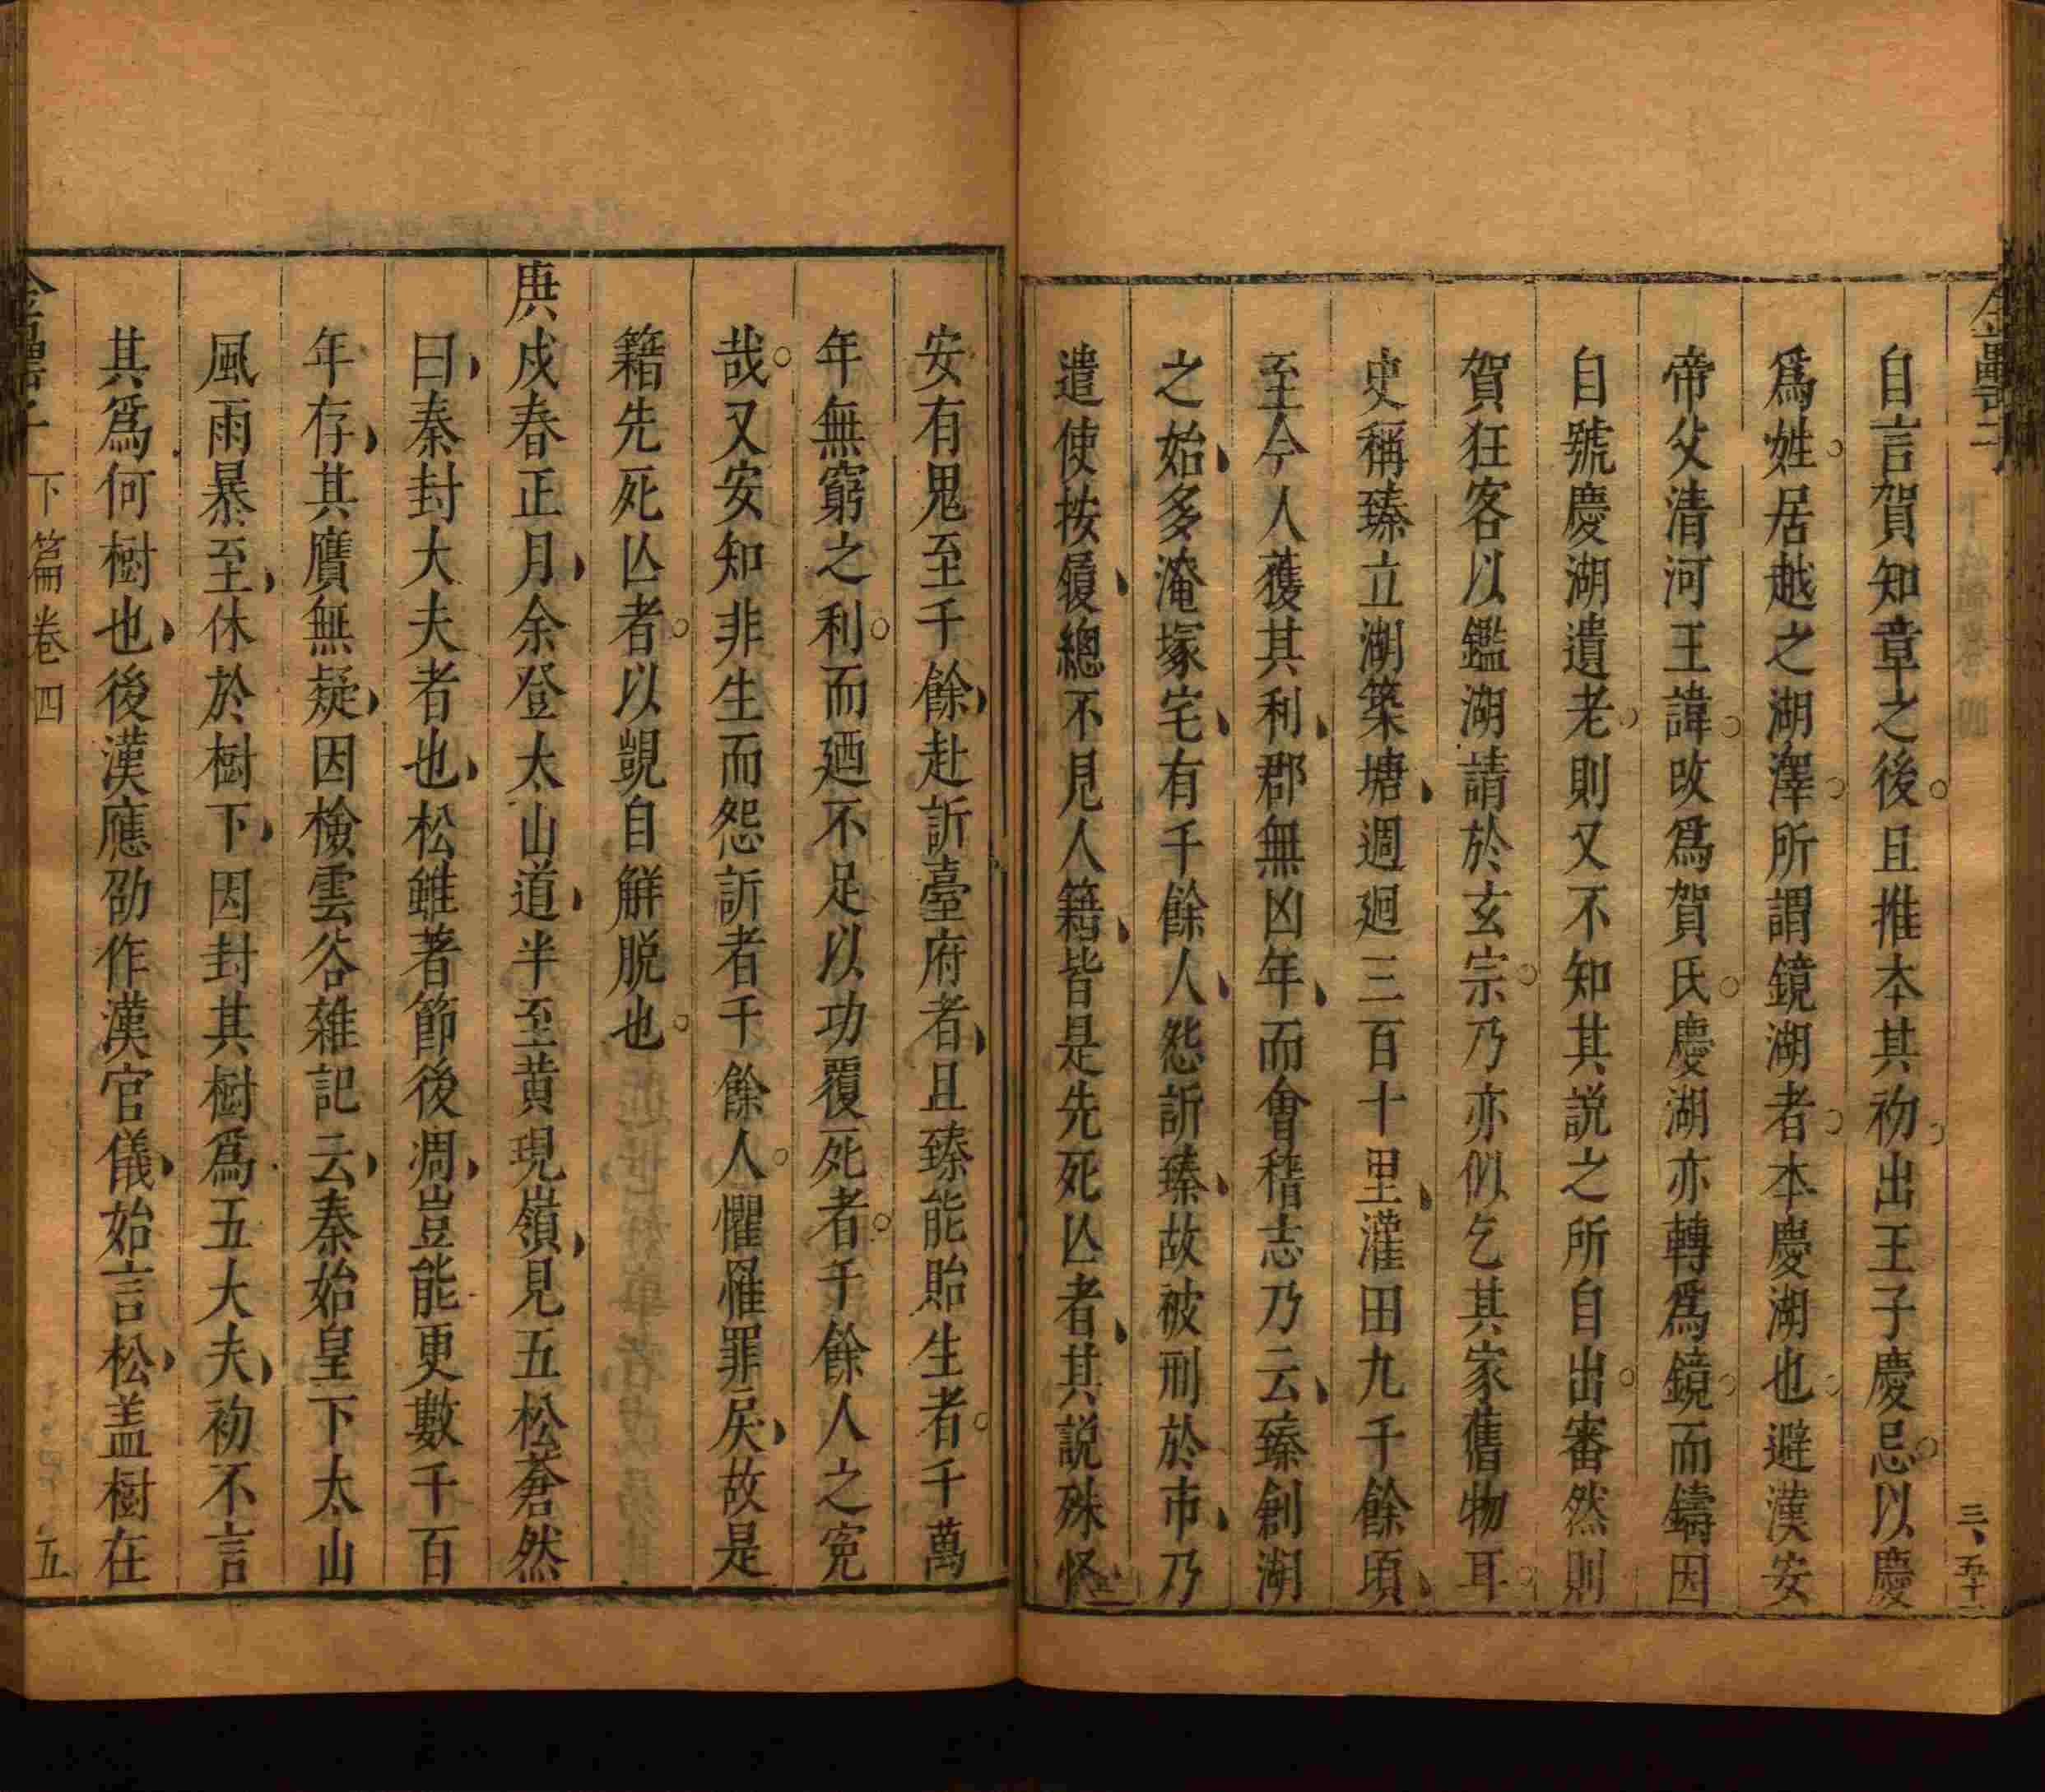 自言賀知章之後且推本其初出王子慶忌以慶
爲姓居越之湖澤所謂鏡湖者本慶湖也避漢安
帝父清河王諱改爲賀氏慶湖亦轉爲鏡而鑄因
自號慶湖遺老則又不知其説之所自出審然則
賀狂客以鑑湖請於玄宗乃亦似乞其家舊物耳
史稱臻立湖築塘週迴三百十里灌田九千餘頃
至今人獲其利郡無凶年而會稽志乃云臻創湖
之始多淹塚宅有千餘人怨訢臻故被刑於市乃
遣使按覆總不見人籍皆是先死亾者其説殊怪
安有鬼至千餘赴訢臺府者且臻能貽生者千萬
年無窮之利而廼不足以功覆死者千餘人之寃
哉又安知非生而怨訢者千餘人懼罹罪戾故是
籍先死亾者以覬自觧脱也
庚戍春正月余登太山道半至黄峴嶺見五松蒼然
曰秦封大夫者也松雖著節後凋豈能更數千百
年存其贋無疑因檢雲谷雜記云秦始皇下太山
風雨暴至休於樹下因封其樹爲五大夫初不言
其爲何樹也後漢應劭作漢官儀始言松盖樹在
下篇卷四
五